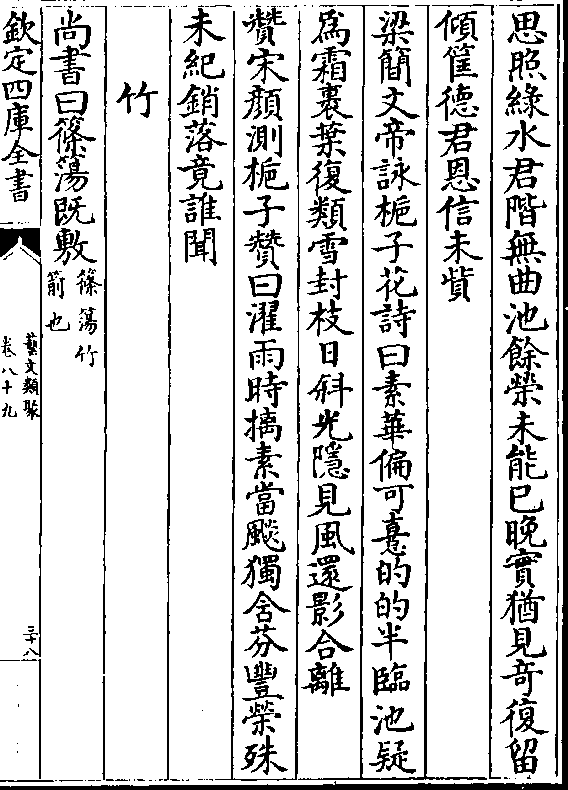 思照緑水君階無曲池餘榮未能已晚實猶見奇復留
傾筐德君恩信未貲
梁簡文帝詠栀子花詩曰素華偏可憙的的半臨池疑
為霜裹葉復類雪封枝日斜光隱見風還影合離
贊宋顔測栀子贊曰濯雨時摛素當飈獨含芬豐榮殊
未紀銷落竟誰聞
竹
尚書曰篠蕩既敷篠蕩竹箭也
欽定四庫全書
藝文類聚
卷八十九
三十八